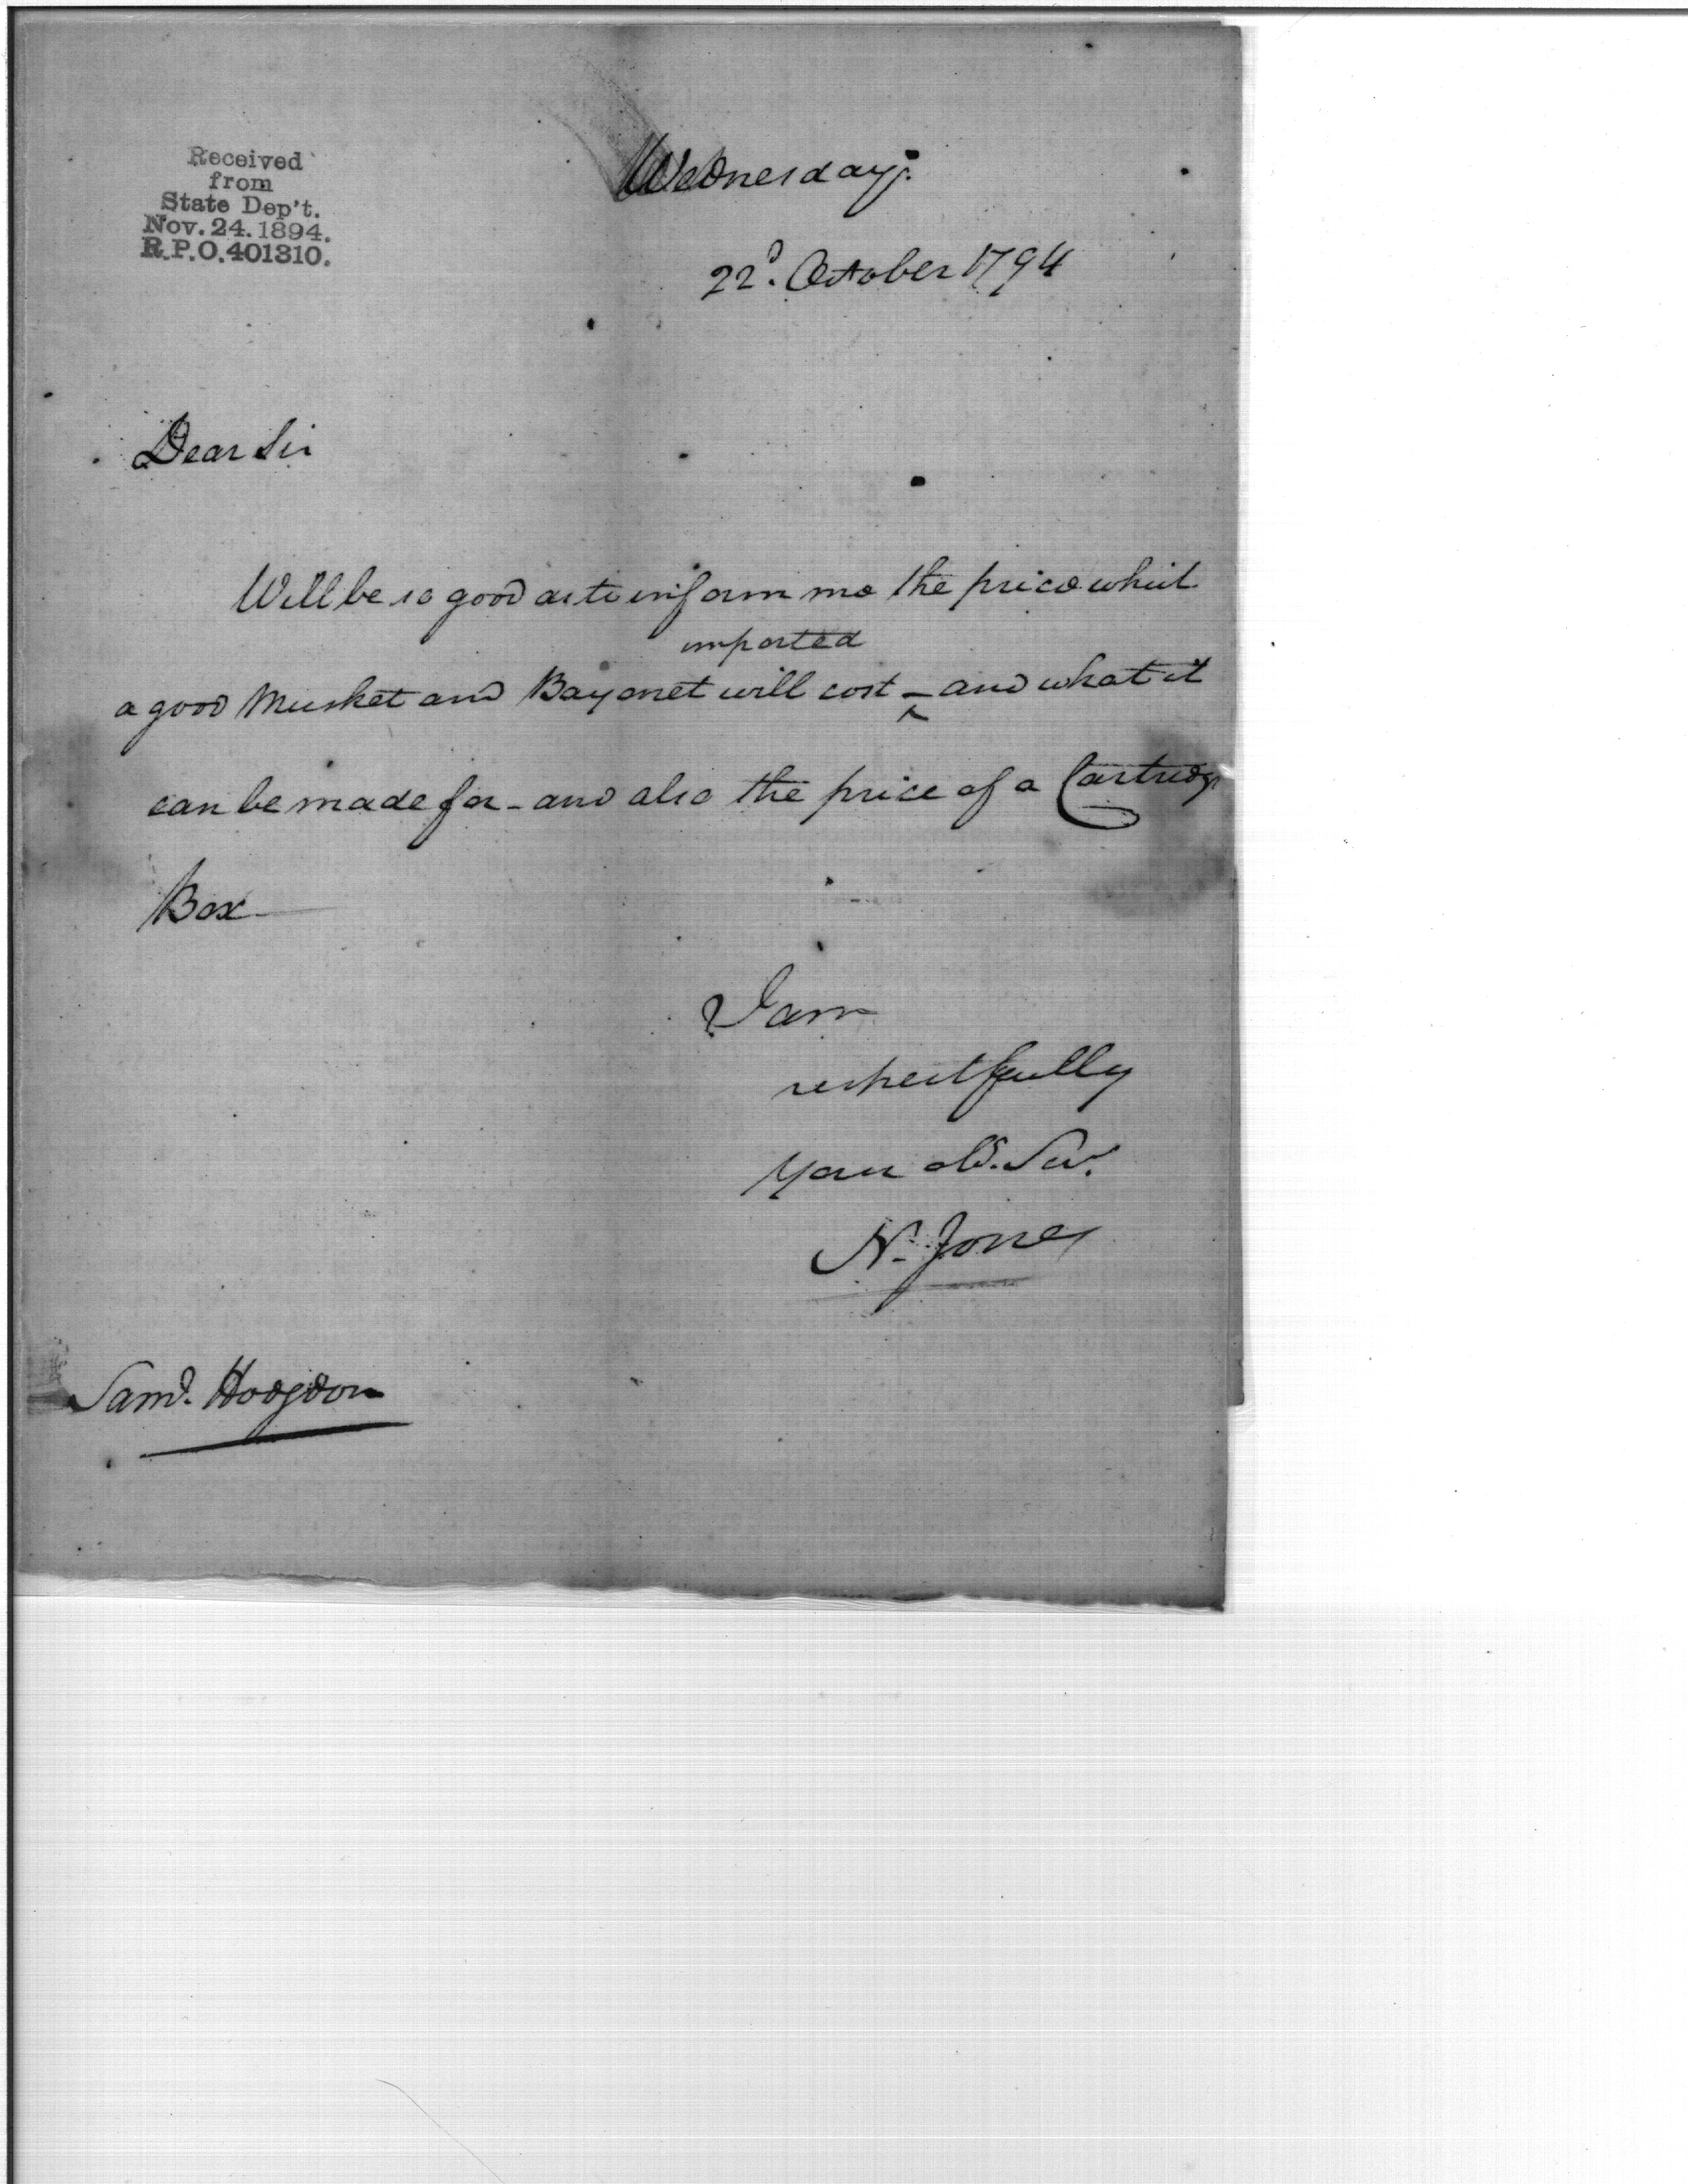 Received
from
State Dep't.
Nov. 24. 1894.
R.P.O. 401310.
Wednesday.
22d. October 1794
Dear Sir
Will be so good as to inform me the price which
imported
a good Musket and Bayonet will cost - and what it
can be made for - and also the price of a Cartridge
Box
I am
respectfully
Your ob. Ser.
N. Jones
Saml. Hodgdon